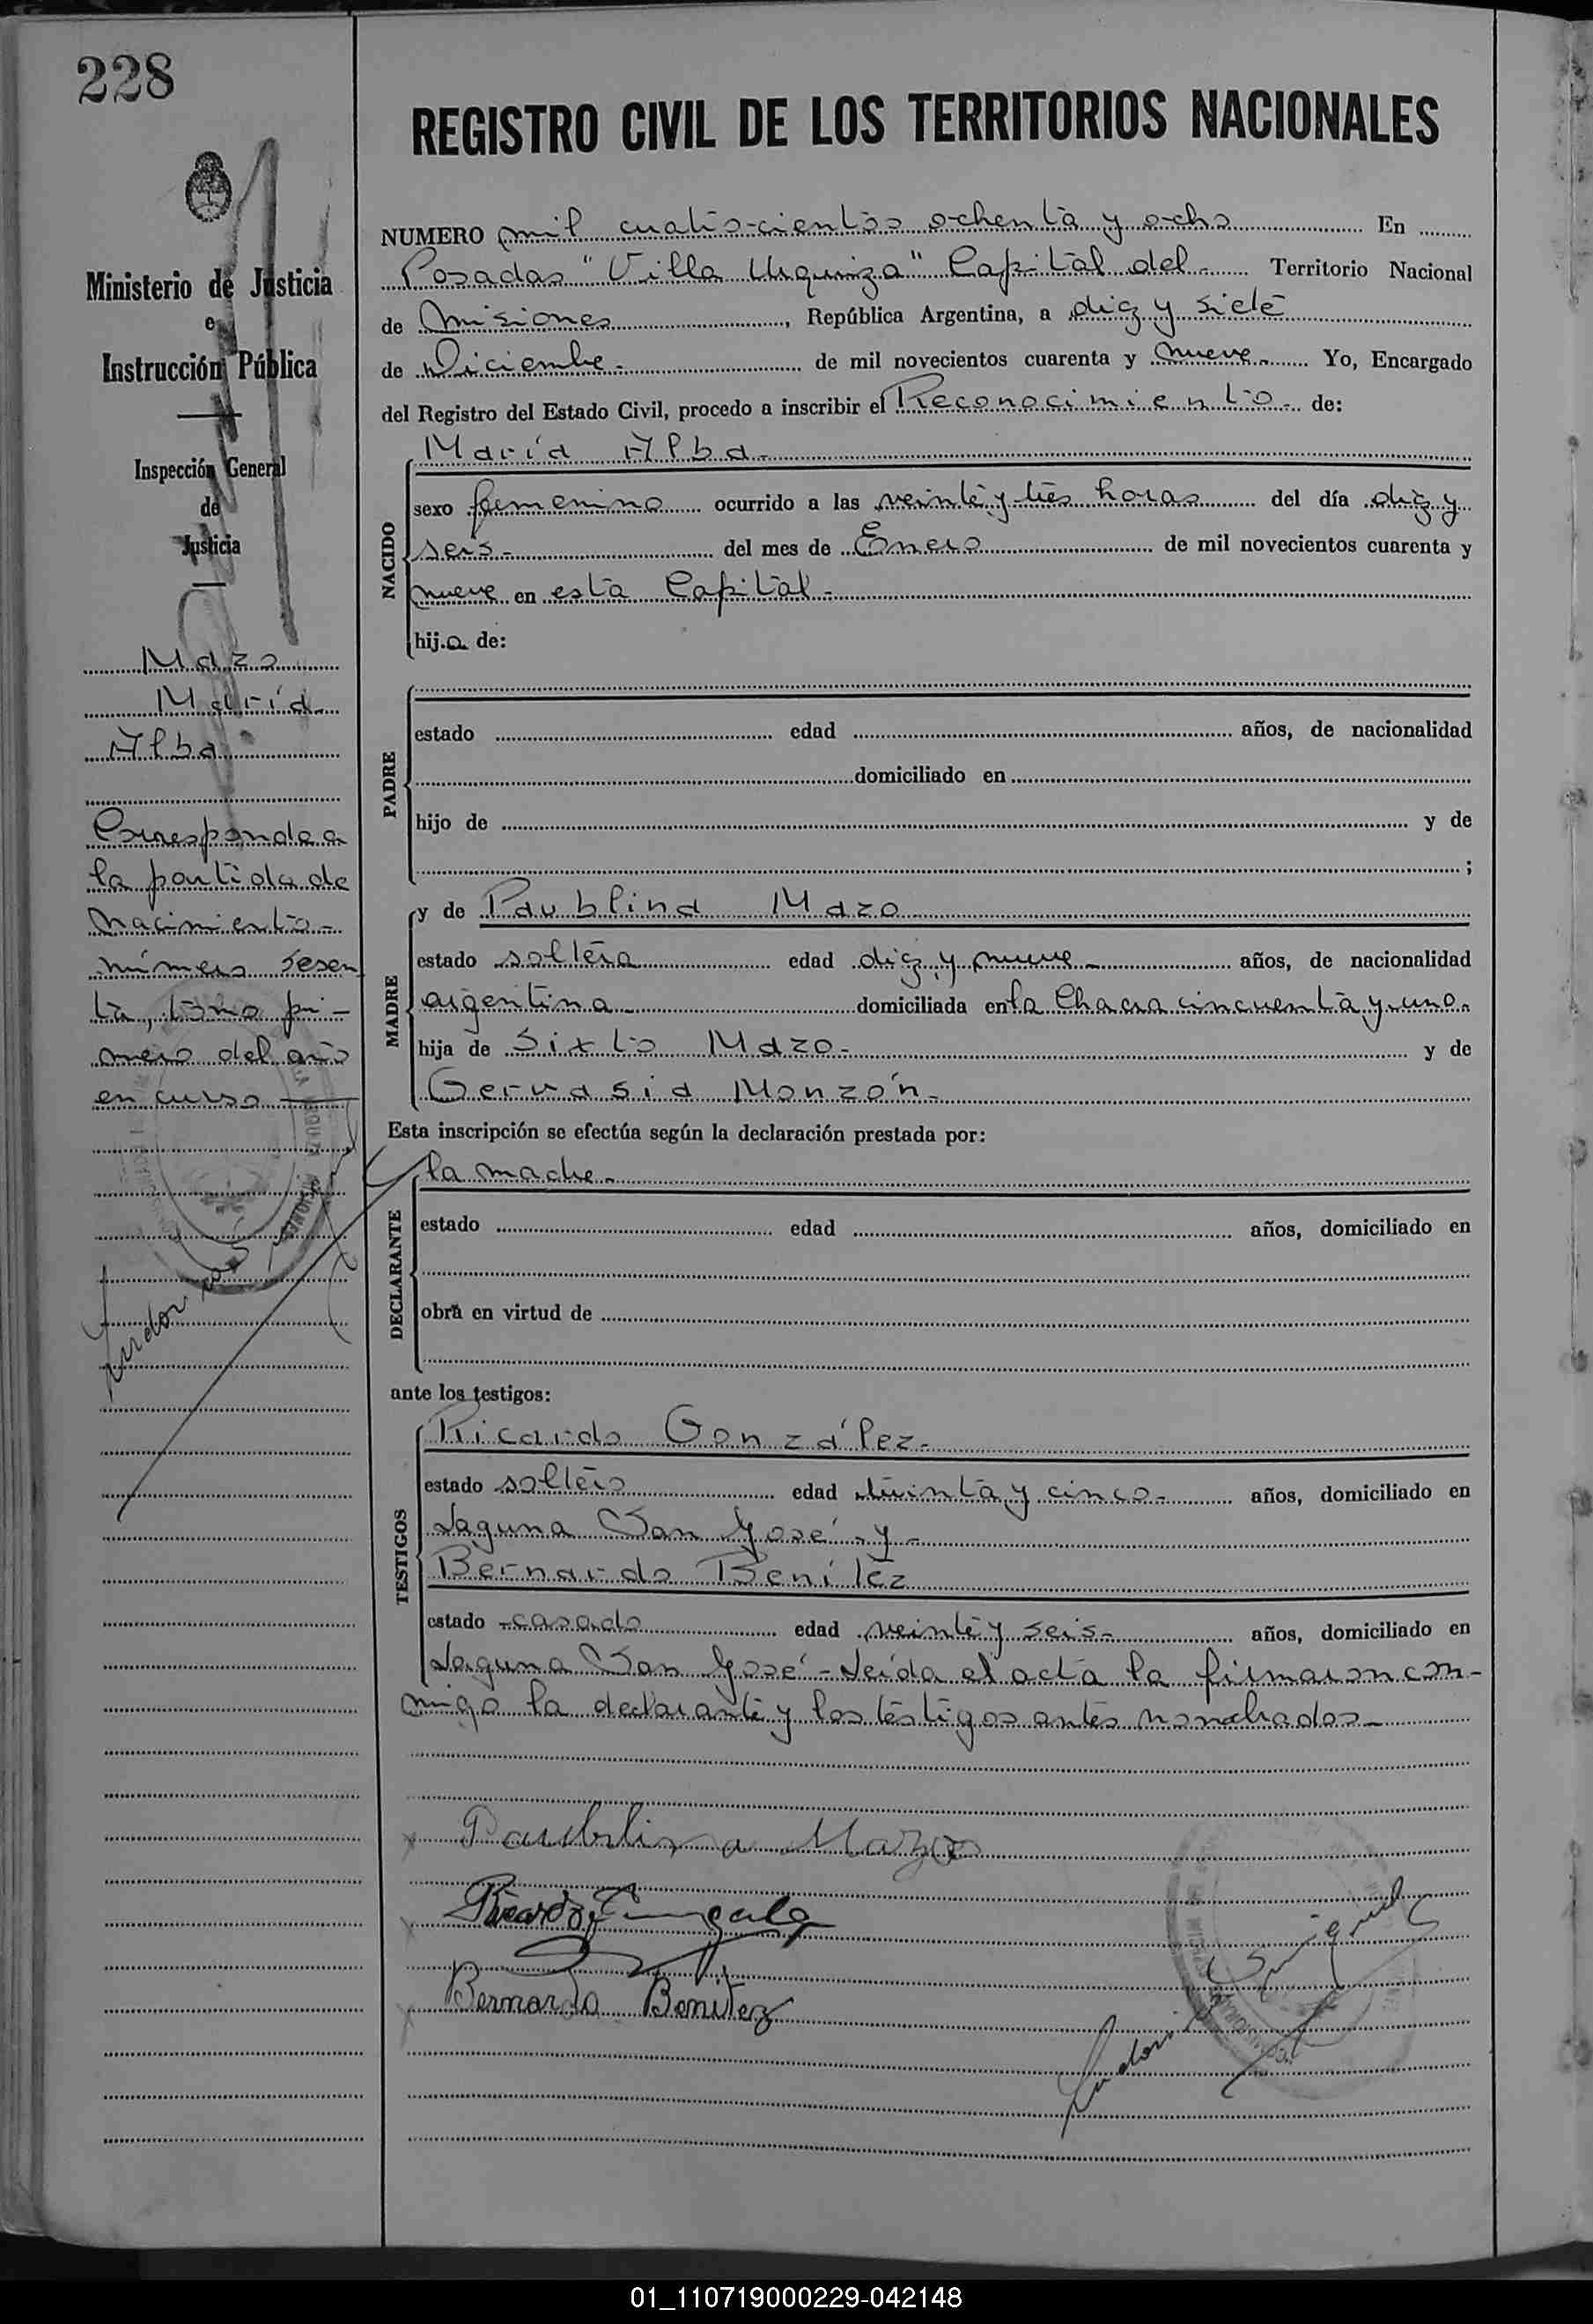 228
REGISTRO CIVIL DE LOS TERRITORIOS NACIONALES
Ministerio de Justicia
e
Instrucción Pública
Inspección General
de
Justicia
Mazo
María
Alba
Corresponde a
la partida de
nacimiento-
número sesen
ta, tomo pri-
mero del año
en curso
NUMERO mil cuatro-cientos ochenta y ocho En
Posadas "Villa Urquiza" Capital del- Territorio Nacional
de Misiones, República Argentina, a diez y siete
de Diciembre- de mil novecientos cuarenta y nueve- Yo, Encargado
del Registro del Estado Civil, procedo a inscribir el Reconocimiento- de:
María Alba-
NACIDO
sexo femenino ocurrido a las veinte y tres horas del día diez y
seis- del mes de Enero de mil novecientos cuarenta y
nueve en esta Capital-
hija de:
PADRE
estado edad años, de nacionalidad
domiciliado en
hijo de y de
;
MADRE
y de Paublina Mazo
estado soltera edad diez y nueve- años, de nacionalidad
argentina domiciliada en la Chacra cincuenta y uno-
hija de Sixto Mazo- y de
Gervasia Monzón-
Esta inscripción se efectúa según la declaración prestada por:
la madre-
DECLARANTE
estado edad años, domiciliado en
obra en virtud de
ante los testigos:
TESTIGOS
Ricardo González-
estado soltero edad treinta y cinco- años, domiciliado en
Laguna San José-y-
Bernardo Benítez
estado casado edad veinte y seis- años, domiciliado en
Laguna San José-Leída el acta la firmaron con-
migo la declarante y los testigos antes nombrados-
Paublina Mazo
Ricardo Gonzalez
Bernardo Benitez
01_110719000229-042148